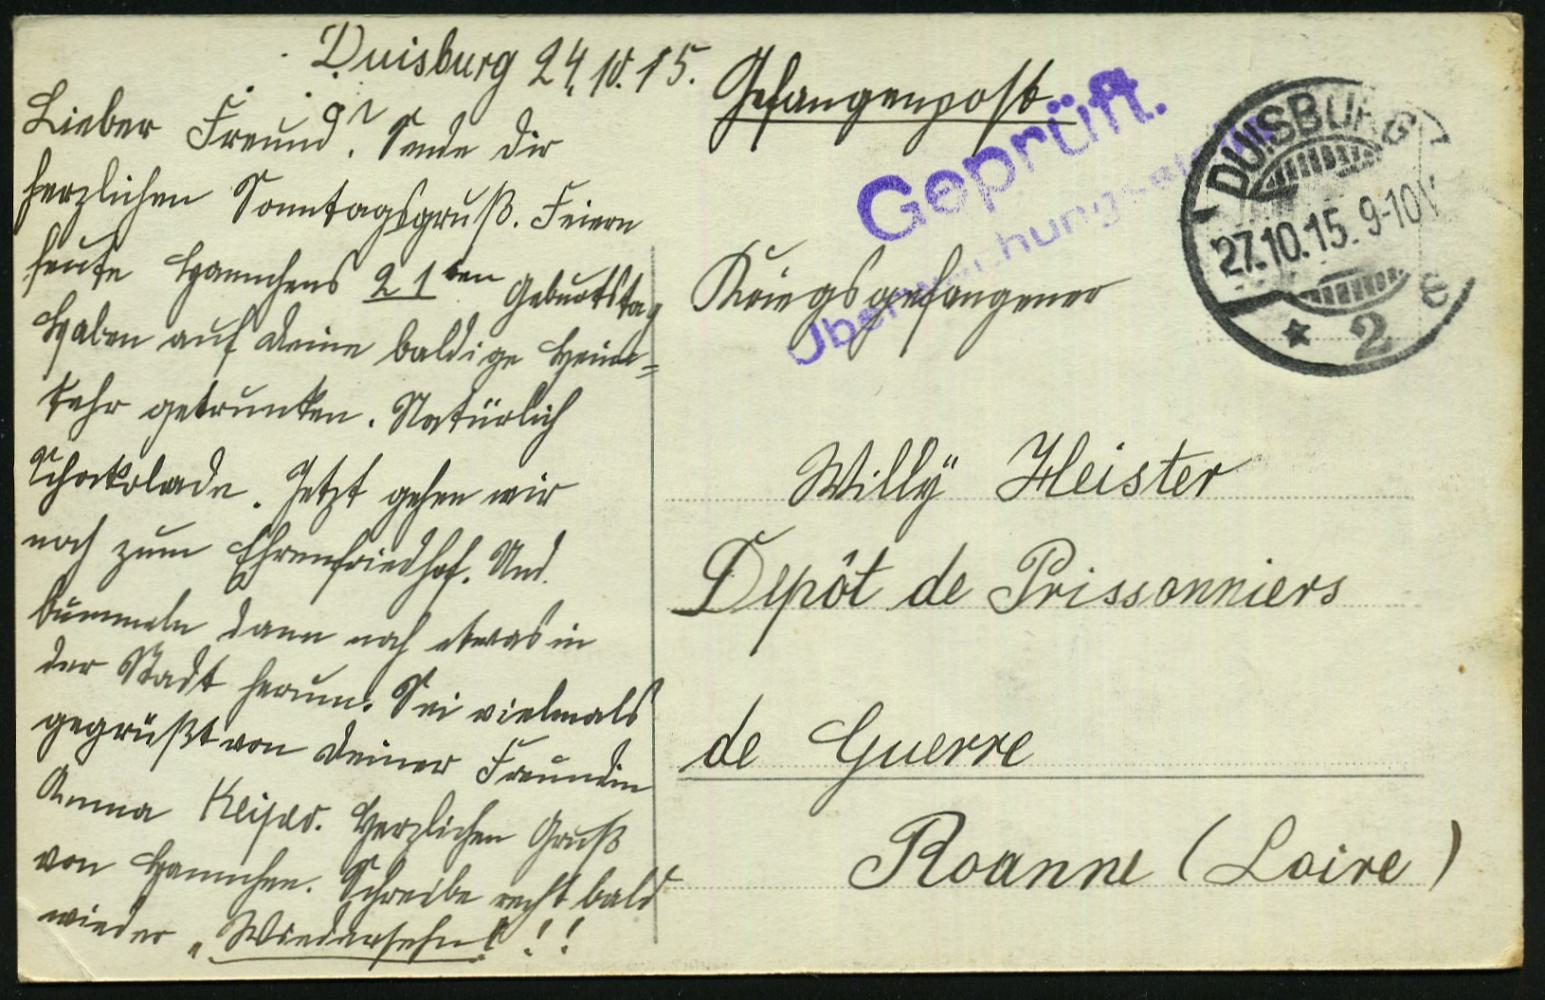 Duisburg 24.10.15.
Lieber Freund! Sende dir
herzlichen Sonntagsgruß. Feiern
heute Hannchens 21ten Geburtstag
Haben auf deine baldige Heim=
kehr getrunken. Natürlich
Schokolade. Jetzt gehen wir
noch zum Ehrenfriedhof. Und
bummeln dann noch etwas in
der Stadt herum. Sei vielmals
gegrüßt von deiner Freundin
Anna Herzlichen Gruß
von Hannchen. Schreibe recht bald
wieder „Wiedersehn! !!
Gefangenpost
Geprüft.
Überwachungsstelle
DUISBURG
27.10.15. 9-10V
* 2 e
Kriegsgefangener
Willÿ Heister
Depôt de Prissonniers
de Guerre
Roanne (Loire)